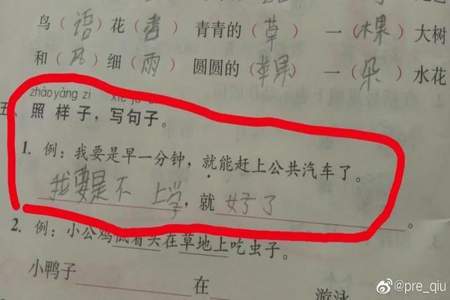 鸟（语）花（香） 青青的（草） 一（棵）大树
和（风）细（雨） 圆圆的（苹果） 一（朵）水花
zhào yàng zi xiě jù
五、照样子，写句子。
1. 例：我要是早一分钟，就能赶上公共汽车了。
我要是不上学，就好了。
2. 例：小公鸡低着头在草地上吃虫子。
小鸭子 在 游泳
@pre_qiu